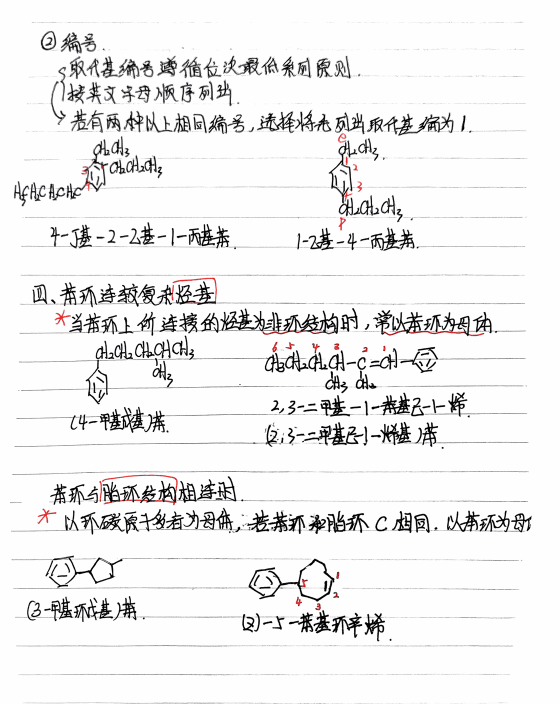 ② 编号.
取代基编号遵循位次最低系列原则.
按英文字母顺序列出.
若有两种以上相同编号,选择将先列出取代基编为1.
CH₂CH₃
3
CH₂CH₂CH₃
H₃CH₂CH₂CH₂C
4
e
CH₂CH₃
1
2
3
4
CH₂CH₂CH₃
p
4-丁基-2-乙基-1-丙基苯.
1-乙基-4-丙基苯.
四、苯环连较复杂烃基
* 当苯环上所连接的烃基为非环结构时,常以苯环为母体.
CH₂CH₂CH₂CHCH₃
CH₃
6 5 4 3 2 1
CH₃CH₂CH₂CH-C=CH-
CH₃ CH₃
(4-甲基戊基)苯.
2,3-二甲基-1-苯基己-1-烯.
(2,3-二甲基己-1-烯基)苯.
苯环与脂环结构相连时.
* 以环碳原子多者为母体,若苯环和脂环C相同.以苯环为母
5
1
2
3
4
(3-甲基环戊基)苯.
(Z)-5-苯基环辛烯.